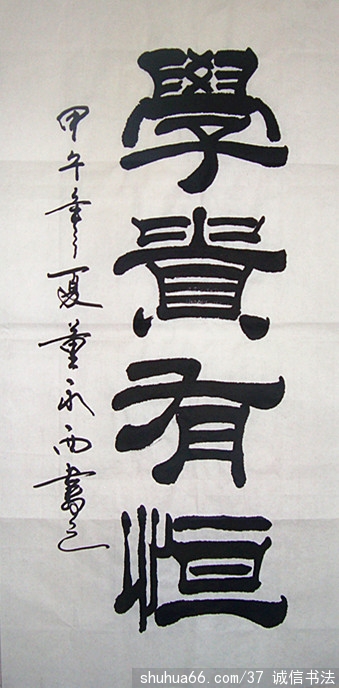 學貴有恒
甲午年夏董永西書之
shuhua66.com/37 诚信书法